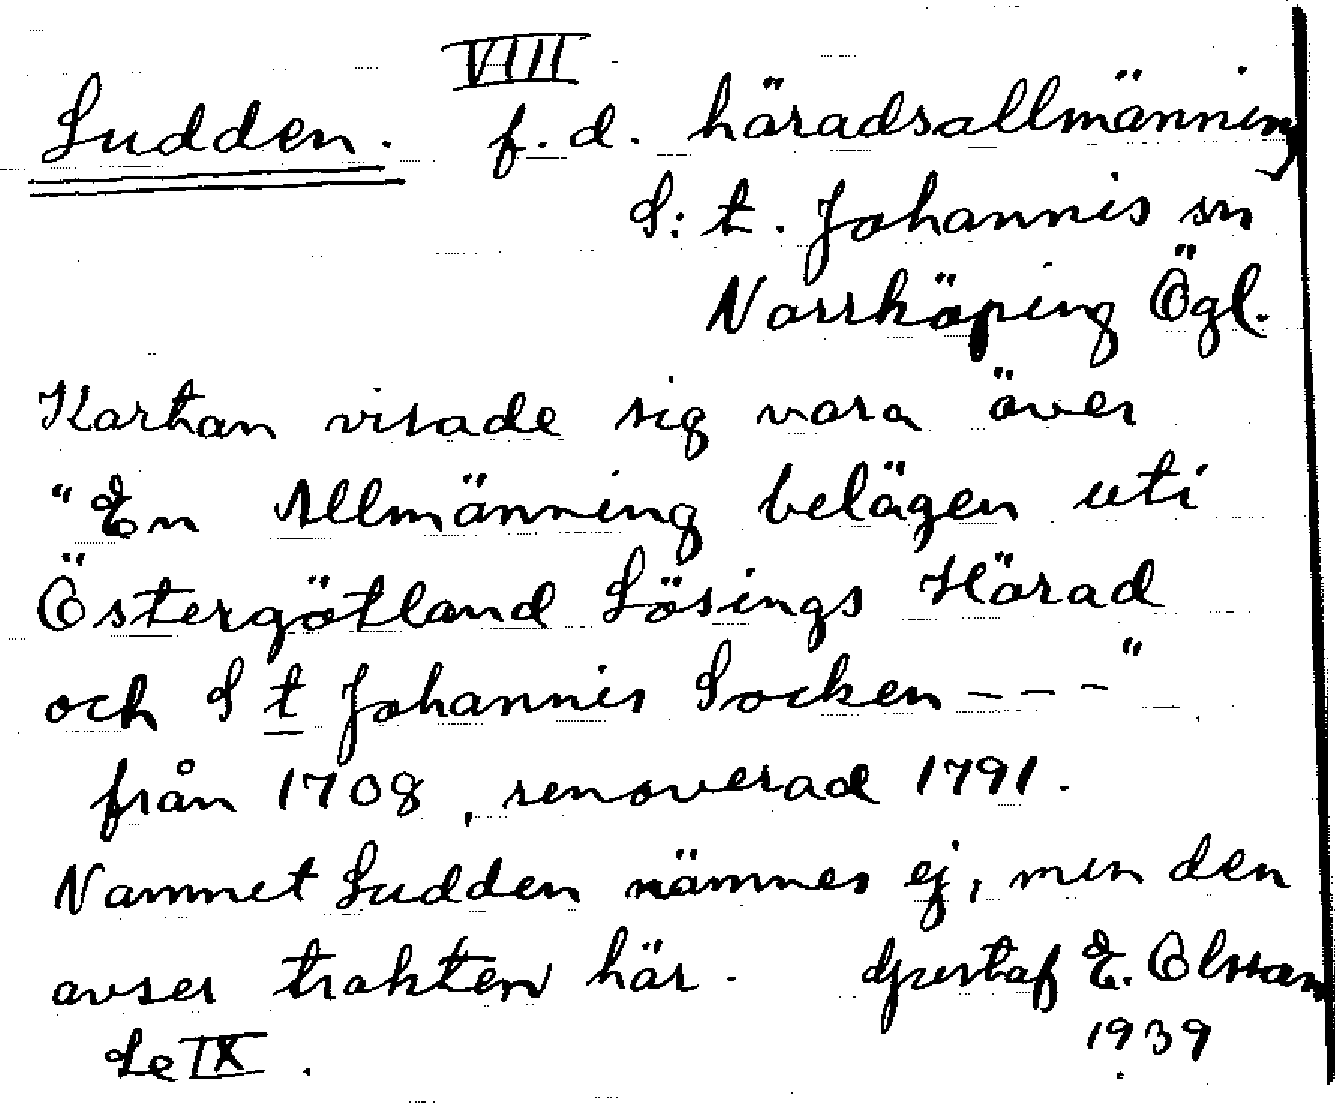 VIII
Sudden. f.d. häradsallmänning
S:t. Johannis sn
Norrköping Ögl.
Kartan visade sig vara över
"En Allmänning belägen uti
Östergötland Lösings Härad
och St Johannis Socken --- "
från 1708, renoverad 1791.
Namnet Sudden nämnes ej, men den
avser trakten här. Gustaf E. Olsson
Se IX. 1939